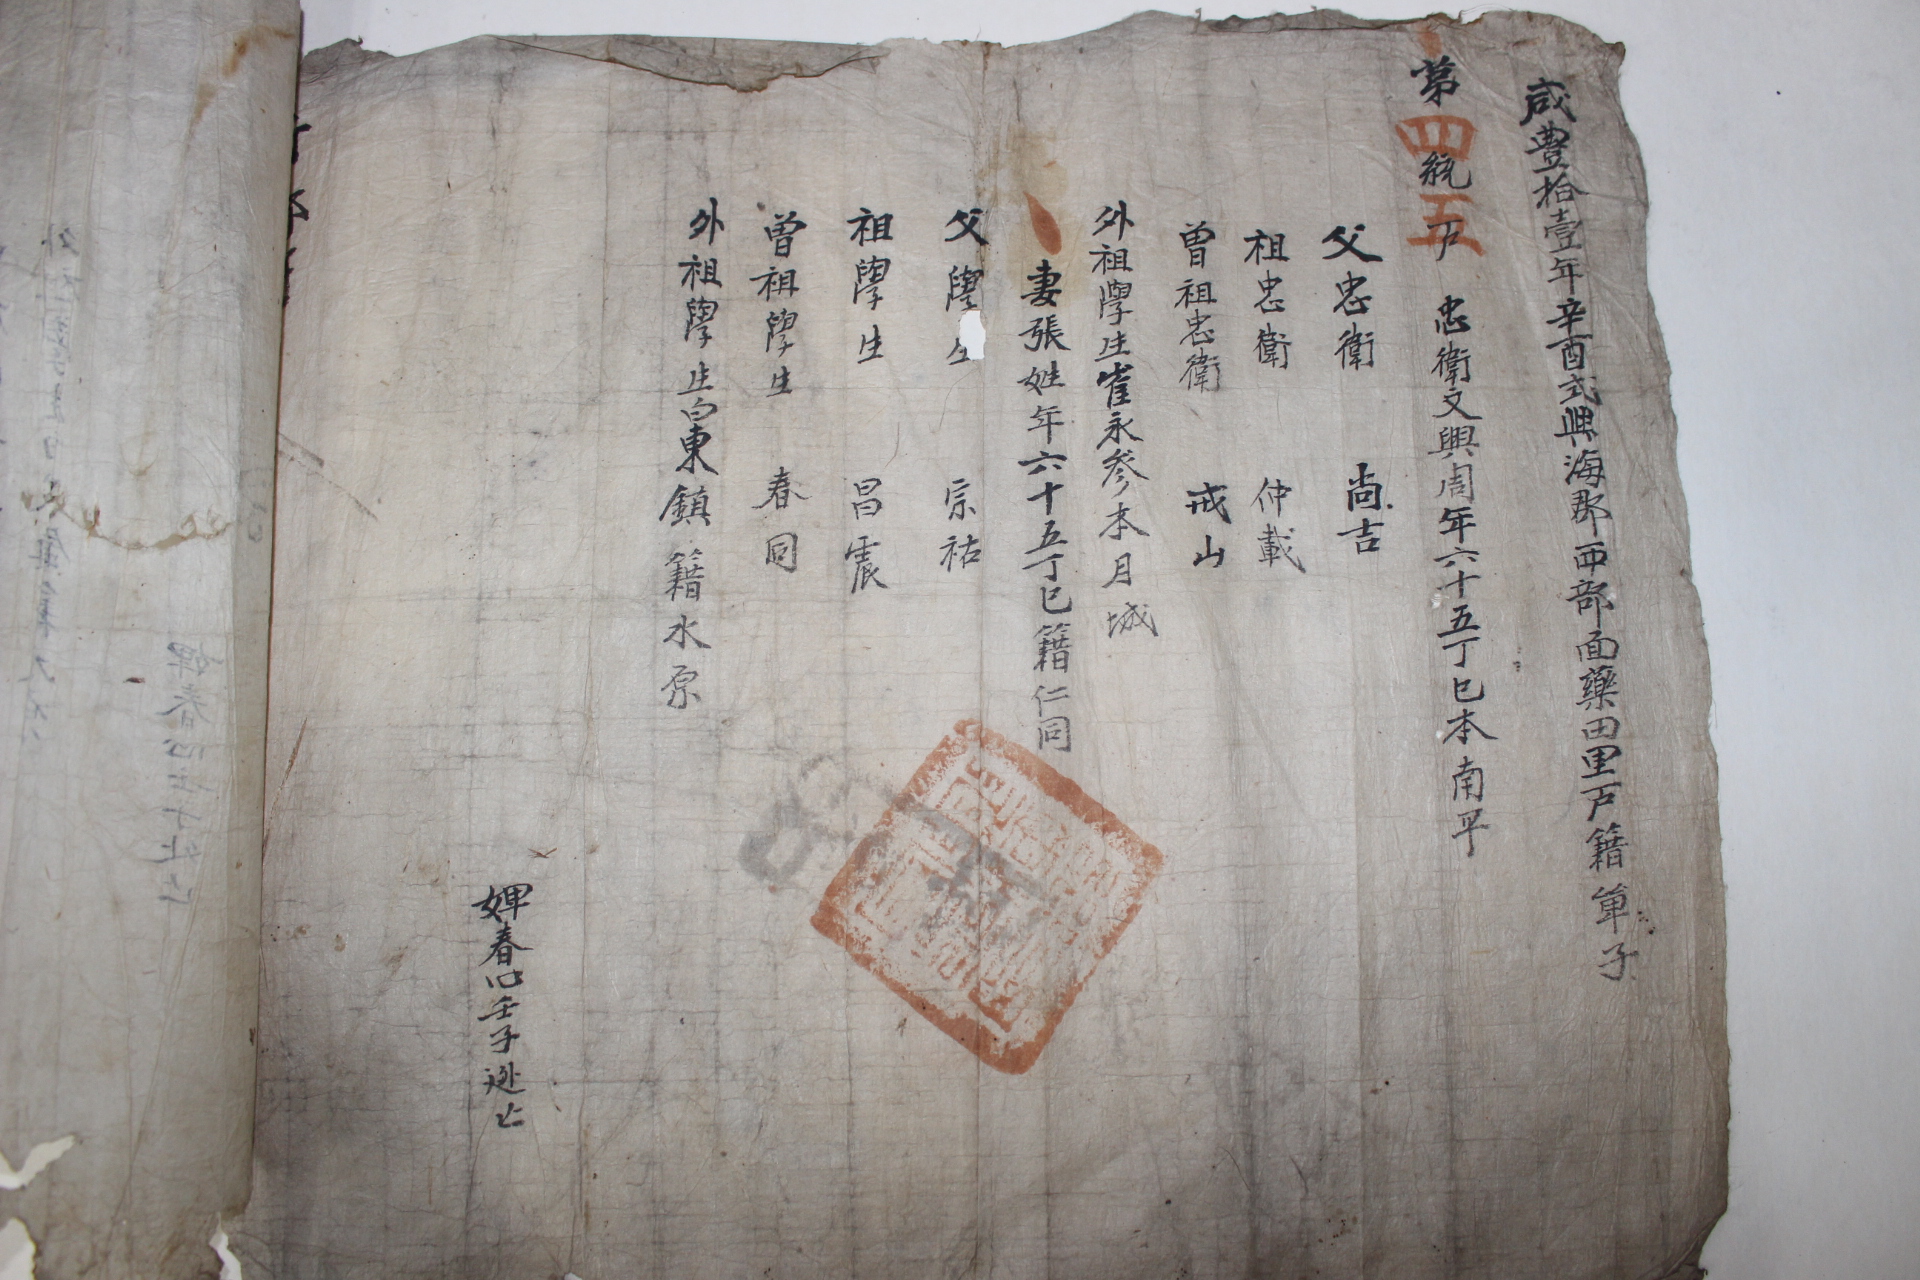 咸豊拾壹年辛酉式興海郡西部面藥田里戶籍單子
第四統五戶 忠衛文興周年六十五丁巳本南平
父忠衛 尙吉
祖忠衛 仲載
曾祖忠衛 戒山
外祖學生崔永參本月城
妻張姓年六十五丁巳籍仁同
父學生 宗祐
祖學生 昌震
曾祖學生 春同
外祖學生白東鎮籍水原
婢春心壬子逃亡